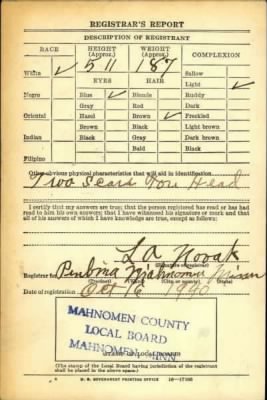 REGISTRAR'S REPORT
DESCRIPTION OF REGISTRANT
RACE HEIGHT (Approx.) WEIGHT (Approx.) COMPLEXION
White ✓ 5 11 187 Sallow
EYES HAIR Light ✓
Negro Blue ✓ Blonde Ruddy
Gray Red Dark
Oriental Hazel Brown ✓ Freckled
Brown Black Light brown
Indian Black Gray Dark brown
Bald Black
Filipino
Other obvious physical characteristics that will aid in identification
Two Scars on Head
I certify that my answers are true; that the person registered has read or has had read to him his own answers; that I have witnessed his signature or mark and that all of his answers of which I have knowledge are true, except as follows:
L A Novak
(Signature of registrar)
Registrar for Pembina Mahnomen Minn
(Precinct) (City or county) (State)
Date of registration Oct 16 1940
MAHNOMEN COUNTY
LOCAL BOARD
MAHNOMEN, MINN
STAMP OF LOCAL BOARD
(The stamp of the Local Board having jurisdiction of the registrant shall be placed in the above space.)
U. S. GOVERNMENT PRINTING OFFICE 16—17105